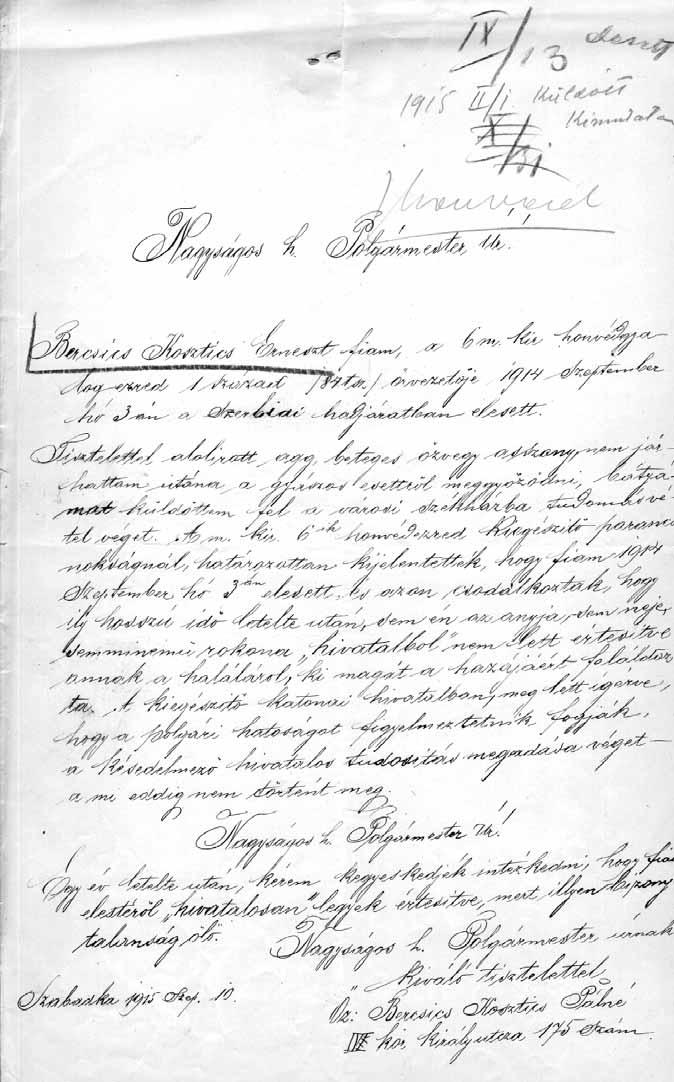 IX/13
1915 II/1. Küldött
X/31
Nagyságos h. Polgármester Úr!
Bercsics Kosztics Erneszt fiam, a 6 m. kir honvédgya
log ezred 1 század /84 tsz./ őrvezetője 1914 Szeptember
hó 3 án a Szerbiai hadjáratban elesett.
Tisztelettel alolirott, agg, beteges özvegy asszony, nem jár-
hattam utána a gyászos esettről meggyőzödni, bátyá-
mat küldöttem fel a városi székházba tudomásvé-
tel véget. A m. kir. 6ik honvédezred Kiegészitő paranc
nokságnál, határozottan kijelentették, hogy fiam 1914
Szeptember hó 3án elesett. és azon csodálkoztak, hogy
ily hosszú idő letelte után, sem én az anyja, sem neje,
semminemű rokona „hivatalbol" nem lett értesitve
annak a haláláról, ki magát a hazájáért feláldoz
ta. A kiegészitő katonai hivatalban, meg lett igérve,
hogy a polgári hatoságot figyelmeztetnik fogják,
a késedelmező hivatalos tudositás megadása véget –
a mi eddig nem történt meg.
Nagyságos h. Polgármester Úr!
Egy év letelte után, kérem kegyeskedjék intézkedni, hogy fiam
elestéről „hivatalosan" legyek értesitve, mert illyen bizony
talanság ölő.
Nagyságos h. Polgármester úrnak
kiváló tisztelettel
Szabadka 1915 Szep. 10.
Öz: Bercsics Kosztics Pálné
IV kör király utcza 175 Szám.